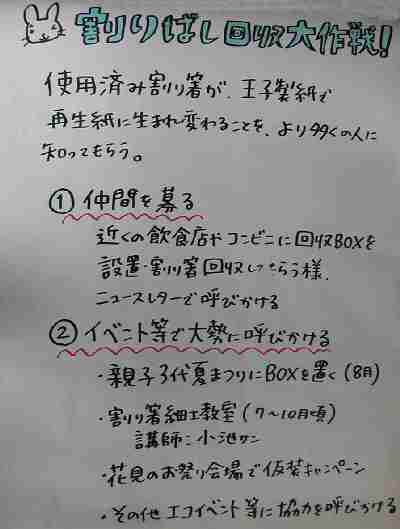 割りばし回収大作戦!
使用済み割り箸が、王子製紙で
再生紙に生まれ変わることを、より多くの人に
知ってもらう。
① 仲間を募る
近くの飲食店やコンビニに回収BOXを
設置・割り箸回収してもらう様、
ニュースレターで呼びかける
② イベント等で大勢に呼びかける
・親子3代夏まつりにBOXを置く(8月)
・割り箸細工教室(7〜10月頃)
講師:小池サン
・花見のお祭り会場で仮装キャンペーン
・その他エコイベント等に協力を呼びかける